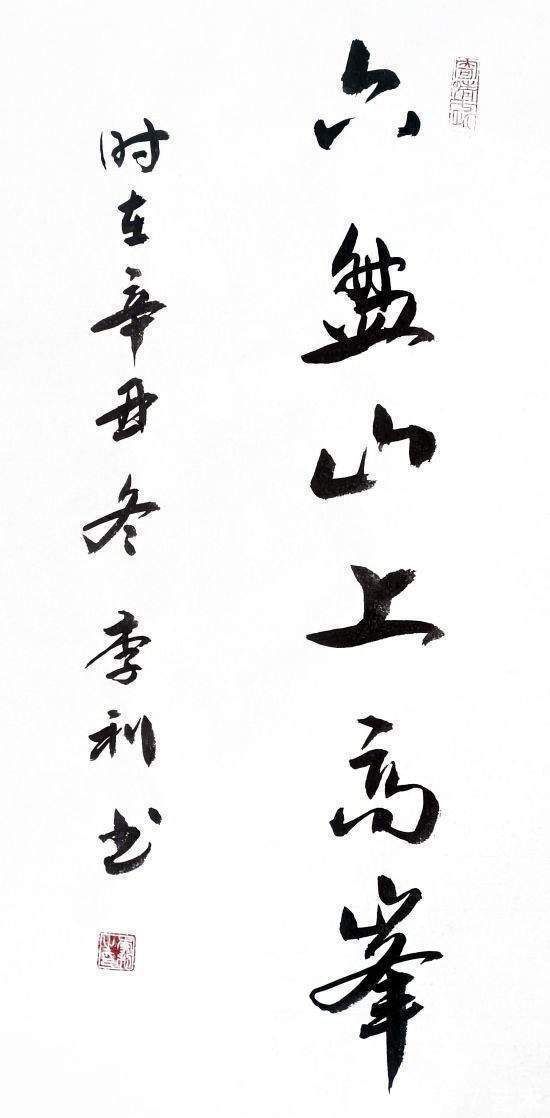 六盤山上高峯
时在辛丑冬李利书